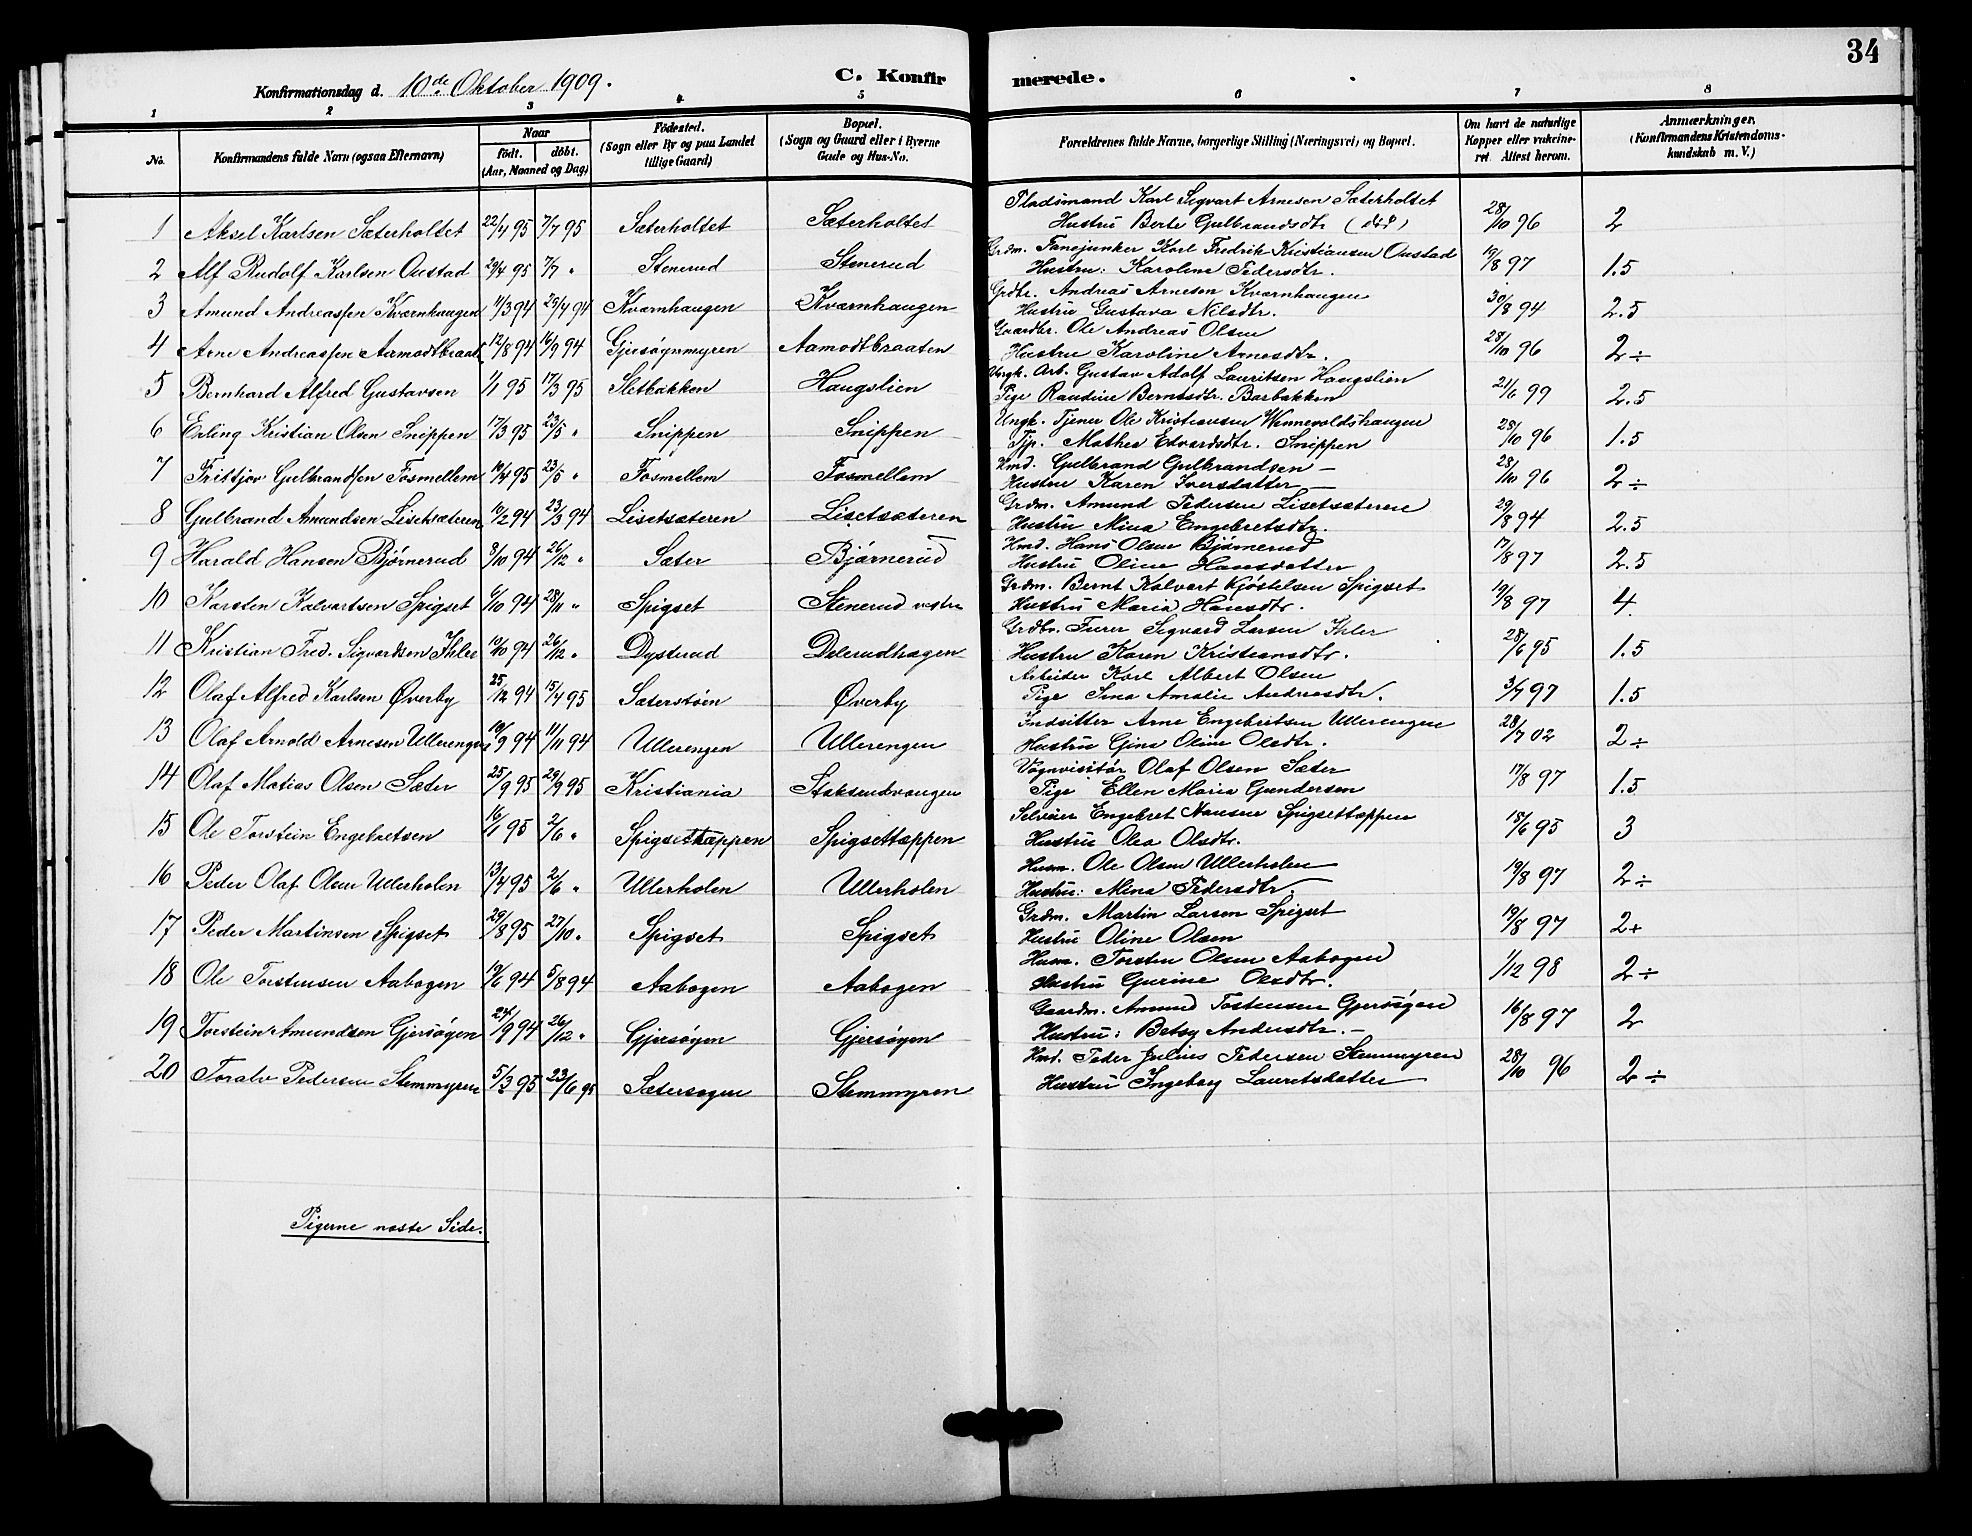 34
Konfirmationsdag d. 10de Oktober 1909.
C. Konfirmerede.
1 2 3 4 5 6 7 8
No.
Konfirmandens fulde Navn (ogsaa Efternavn)
Naar
født. døbt.
(Aar, Maaned og Dag)
Fødested.
(Sogn eller By og paa Landet
tillige Gaard)
Bopæl.
(Sogn og Gaard eller i Byerne
Gade og Hus-No.
Forældrenes fulde Navne, borgerlige Stilling (Næringsvei) og Bopæl.
Om havt de naturlige
Kopper eller vakcine-
ret. Attest herom.
Anmærkninger,
(Konfirmandens Kristendoms-
kundskab m. V.)
Pladsmand Karl Sigvart Arnesen Sæterholtet
1 Aksel Karlsen Sæterholtet 22/4 95 7/7 95 Sæterholtet Sæterholtet Hustru Berte Gulbrandsdtr (død) 28/10 96 2
Grdm. Fanejunker Karl Fredrik Kristiansen Oustad
2 Alf Rudolf Karlsen Oustad 29/4 95 7/7 " Stenerud Stenerud Hustru: Karoline Pedersdtr. 19/8 97 1.5
Grdbr. Andreas Arnesen Kværnhaugen
3 Amund Andreassen Kværnhaugen 11/3 94 29/4 94 Kværnhaugen Kværnhaugen Hustru Gustava Nilsdtr. 30/8 94 2.5
Gaardbr. Ole Andreas Olsen
4 Arne Andreassen Aamodtbraat 12/8 94 16/9 94 Gjersøgnmyren Aamodtbraaten Hustru Karoline Arnesdtr. 28/10 96 2÷
Ungk. Arb. Gustav Adolf Lauritsen Haugslien
5 Bernhard Alfred Gustavsen 1/1 95 17/3 95 Sletbakken Haugslien Pige Randine Berntsdtr. Barbakken 21/6 99 2.5
Ungk. Tjener Ole Kristiansen Vennevoldshaugen
6 Erling Kristian Olsen Snippen 17/3 95 23/5 " Snippen Snippen Tjp. Mathea Edvardsdtr. Snippen 28/10 96 1.5
Hmd. Gulbrand Gulbrandsen —
7 Fritjov Gulbrandsen Fosmellem 10/4 95 23/5 " Fosmellem Fosmellem Hustru Karen Iversdatter — 28/10 96 2÷
Grdm. Amund Pedersen Lisetsæteren
8 Gulbrand Amundsen Lisetsæteren 10/2 94 23/3 94 Lisetsæteren Lisetsæteren Hustru Mina Engebretsdtr. 29/8 94 2.5
Hmd. Hans Olsen Bjørnerud
9 Harald Hansen Bjørnerud 8/10 94 26/12 " Sæter Bjørnerud Hustru Oline Hansdatter 17/8 97 2.5
Grdm. Bernt Kalvart Kjøstelsen Spigset
10 Karsten Kalvartsen Spigset 6/10 94 28/11 " Spigset Stenerud vestre Hustru Maria Hansdtr. 19/8 97 4.
Grdbr. Furer Sigvard Larsen Ihler
11 Kristian Fred. Sigvardsen Ihler 10/10 94 26/12 " Dysterud Delerudhagen Hustru Karen Kristiansdtr. 28/6 95 1.5
Arbeider Karl Albert Olsen
12 Olaf Alfred Karlsen Øverby 25/12 94 15/4 95 Sæterstøen Øverby Pige Lina Amalie Andreasdtr. 3/7 97 1.5
Indsitter Arne Engebretsen Ullerengen
13 Olaf Arnold Arnesen Ullerengen 10/9 94 11/11 94 Ullerengen Ullerengen Hustru Gina Oline Olsdtr. 28/7 02 2÷
Vognvisitør Olaf Olsen Sæter
14 Olaf Matias Olsen Sæter 25/9 95 29/9 95 Kristiania Staksrudvangen Pige Ellen Maria Gundersen 17/8 97 1.5
Selveier Engebret Hansen Spigsettæppen
15 Ole Torstein Engebretsen 16/1 95 2/6 " Spigsettæppen Spigsettæppen Hustru Olea Olsdtr. 15/6 95 3
Husm. Ole Olsen Ullerholen
16 Peder Olaf Olsen Ullerholen 13/4 95 2/6 " Ullerholen Ullerholen Hustru: Mina Pedersdtr. 19/8 97 2÷
Grdm. Martin Larsen Spigset
17 Peder Martinsen Spigset 29/8 95 27/10 " Spigset Spigset Hustru Oline Olsen 19/8 97 2+
Husm. Torsten Olsen Aabogen
18 Ole Torstensen Aabogen 19/6 94 5/8 94 Aabogen Aabogen Hustru Gurine Olsdtr. 1/12 98 2÷
Gaardm. Amund Tostensen Gjersøgen
19 Torstein Amundsen Gjersøgen 24/9 94 26/12 " Gjersøgen Gjersøgen Hustru: Betsy Andersdtr. — 16/8 97 2
Hmd. Peder Julius Pedersen Stemmyren
20 Toralv Pedersen Stemmyren 5/3 95 23/6 95 Sætersagen Stemmyren Hustru Ingeborg Lauretsdatter 28/10 96 2÷
Pigerne næste Side.